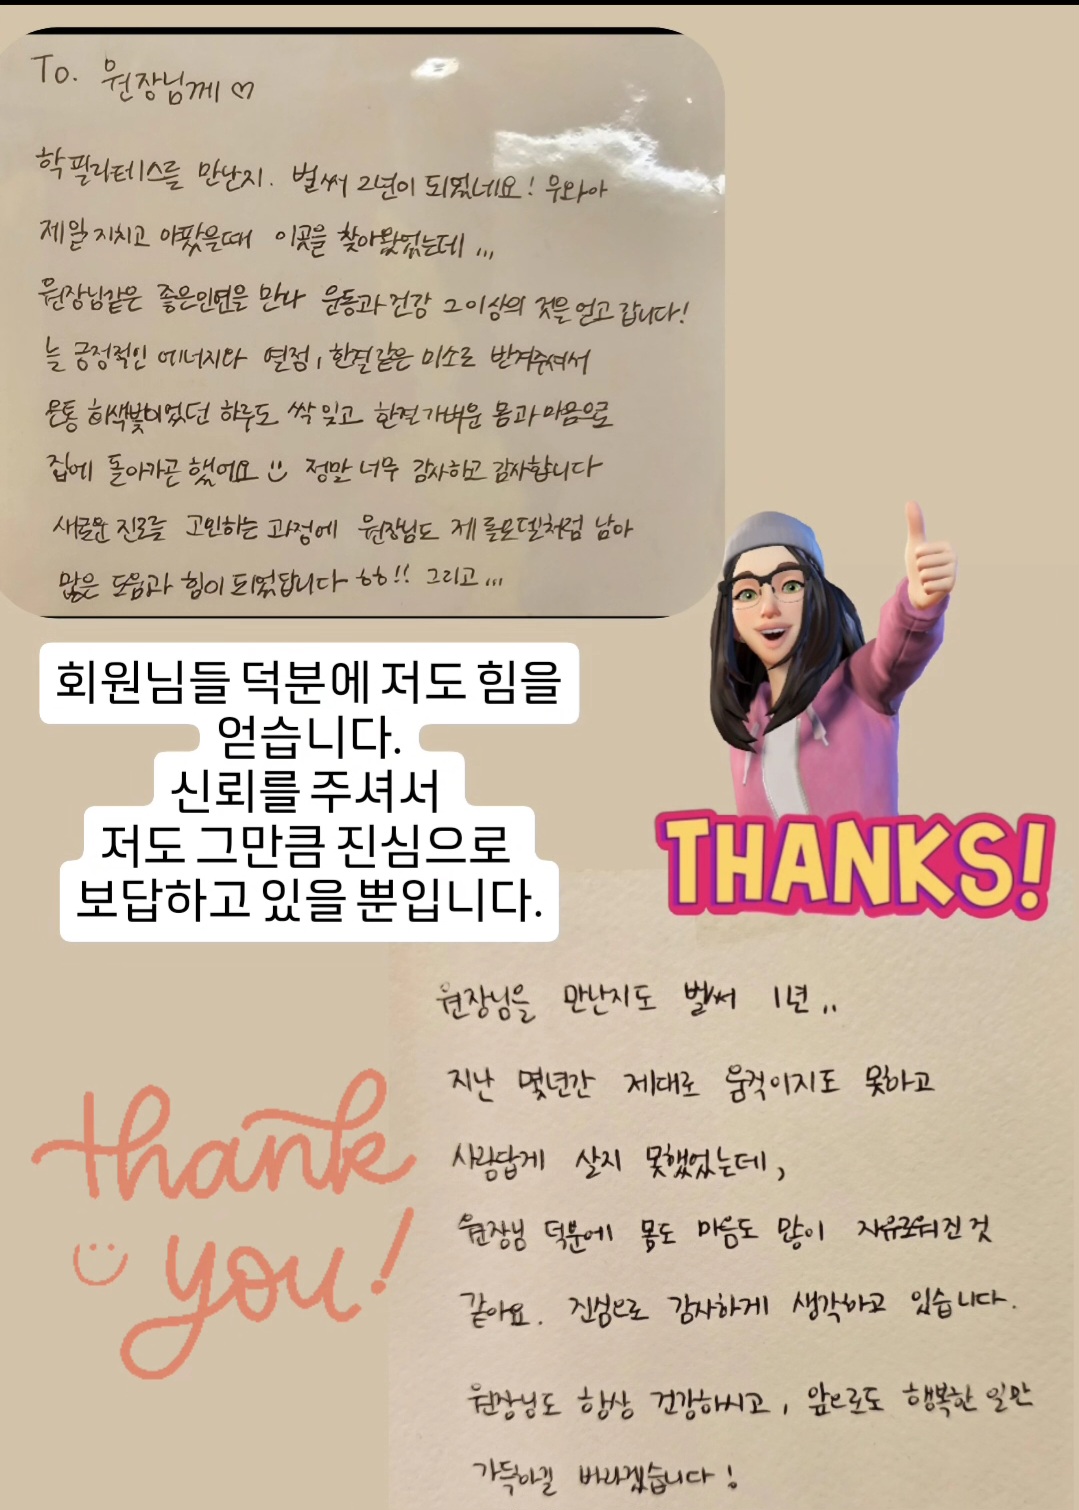 To. 원장님께 ♡
학필라테스를 만난지. 벌써 2년이 되었네요! 우와아
제일 지치고 아팠을때 이곳을 찾아왔었는데...
원장님같은 좋은인연을 만나 운동과 건강 그 이상의 것을 얻고 갑니다!
늘 긍정적인 에너지와 열정, 한결같은 미소로 반겨주셔서
온통 회색빛이었던 하루도 싹 잊고 한결 가벼운 몸과 마음으로
집에 돌아가곤 했어요 정말 너무 감사하고 감사합니다
새로운 진로를 고민하는 과정에 원장님도 제 롤모델처럼 남아
많은 도움과 힘이 되었답니다 ㅎㅎ!! 그리고...
회원님들 덕분에 저도 힘을
얻습니다.
신뢰를 주셔서
저도 그만큼 진심으로
보답하고 있을 뿐입니다.
THANKS!
원장님을 만난지도 벌써 1년..
지난 몇년간 제대로 움직이지도 못하고
사람답게 살지 못했었는데,
원장님 덕분에 몸도 마음도 많이 자유로워진 것
같아요. 진심으로 감사하게 생각하고 있습니다.
원장님도 항상 건강하시고, 앞으로도 행복한 일만
가득하길 바라겠습니다!
thank
you!